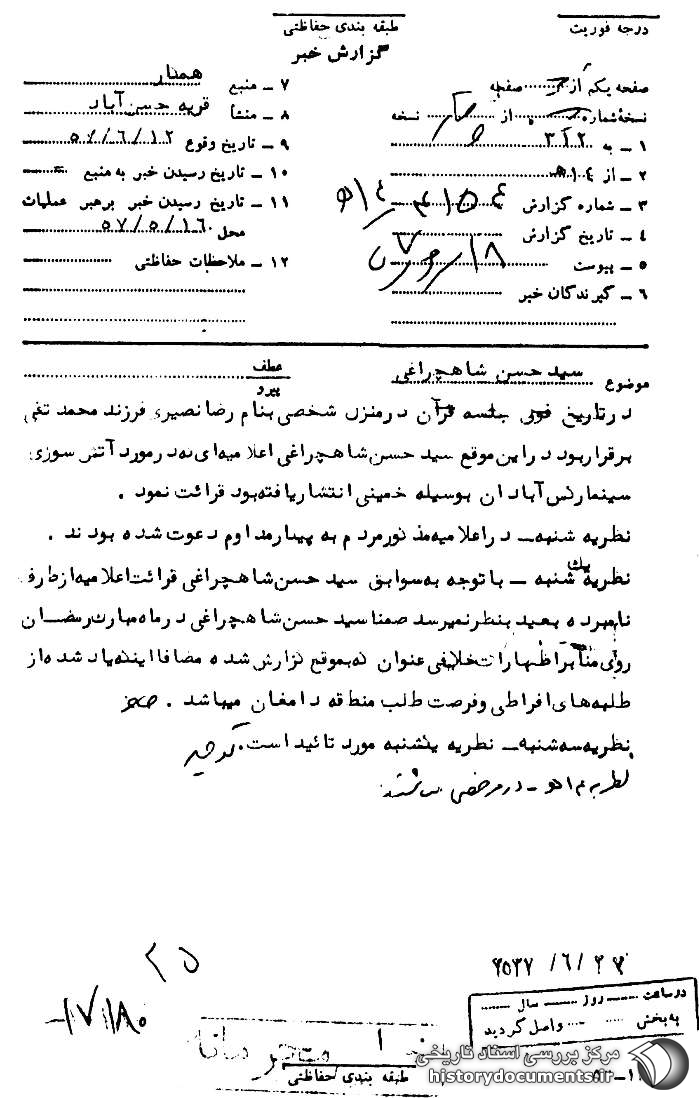 درجه فوریت
طبقه بندی حفاظتی
گزارش خبر
صفحه یکم از صفحه
نسخهٔ شماره از نسخه
۱ – به ۳۲۱
۲ – از ۱۴ ه
۳ – شماره گزارش
۴ – تاریخ گزارش
۵ – پیوست
۶ – گیرندگان خبر
۷ – منبع همکار
۸ – منشأ قریه حسن آباد
۹ – تاریخ وقوع ۵۷/۶/۱۲
۱۰ – تاریخ رسیدن خبر به منبع
۱۱ – تاریخ رسیدن خبر برهبر عملیات
محل ۵۷/۵/۱۶
۱۲ – ملاحظات حفاظتی
موضوع سید حسن شاهچراغی
عطف
پیرو
در تاریخ فوق جلسه قرآن در منزل شخصی بنام رضا نصیری فرزند محمد تقی
برقرار بود در این موقع سید حسن شاهچراغی اعلامیه‌ای که در مورد آتش سوزی
سینما رکس آبادان بوسیله خمینی انتشار یافته بود قرائت نمود .
نظریه شنبه – در اعلامیه مذکور مردم به پیکار مداوم دعوت شده بودند .
نظریه یک شنبه – با توجه به سوابق سید حسن شاهچراغی قرائت اعلامیه از طرف
نامبرده بعید بنظر نمیرسد ضمنا سید حسن شاهچراغی در ماه مبارک رمضان
روی منابر اظهارات خلافی عنوان که بموقع گزارش شده مضافا اینکه یاد شده از
طلبه‌های افراطی و فرصت طلب منطقه دامغان میباشد .
نظریه سه شنبه – نظریه یکشنبه مورد تائید است .
نظریه ۱۴ ه – در مرخصی
۲۵
۲۵۳۷/۶/۲۳
در ساعت روز سال
به بخش واصل گردید
طبقه بندی حفاظتی
مرکز بررسی اسناد تاریخی
historydocuments.ir